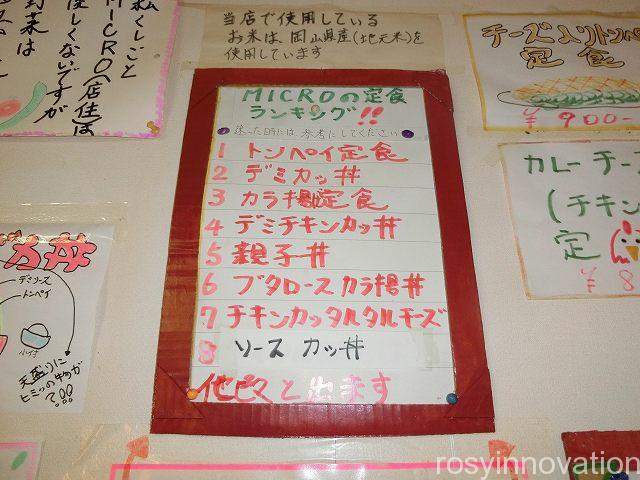 私くしごと
MICRO(店住は
優しくないですが
野菜は
当店で使用している
お米は、岡山県産(地元米)を
使用しています
チーズ入りトンペイ
定食
¥900-
MICROの定食
ランキング!!
迷った時には、参考にしてください
1 トンペイ定食
2 デミカツ丼
3 カラ揚定食
4 デミチキンカツ丼
5 親子丼
6 ブタロースカラ揚丼
7 チキンカツタルタルチーズ
8 ソースカツ丼
他ピマと出ます
カレーチーズ
(チキン
定
¥8
カ丼
デミソース
トンペイ
天盛りに
ヒミツの物が
で!!!
rosyinnovation